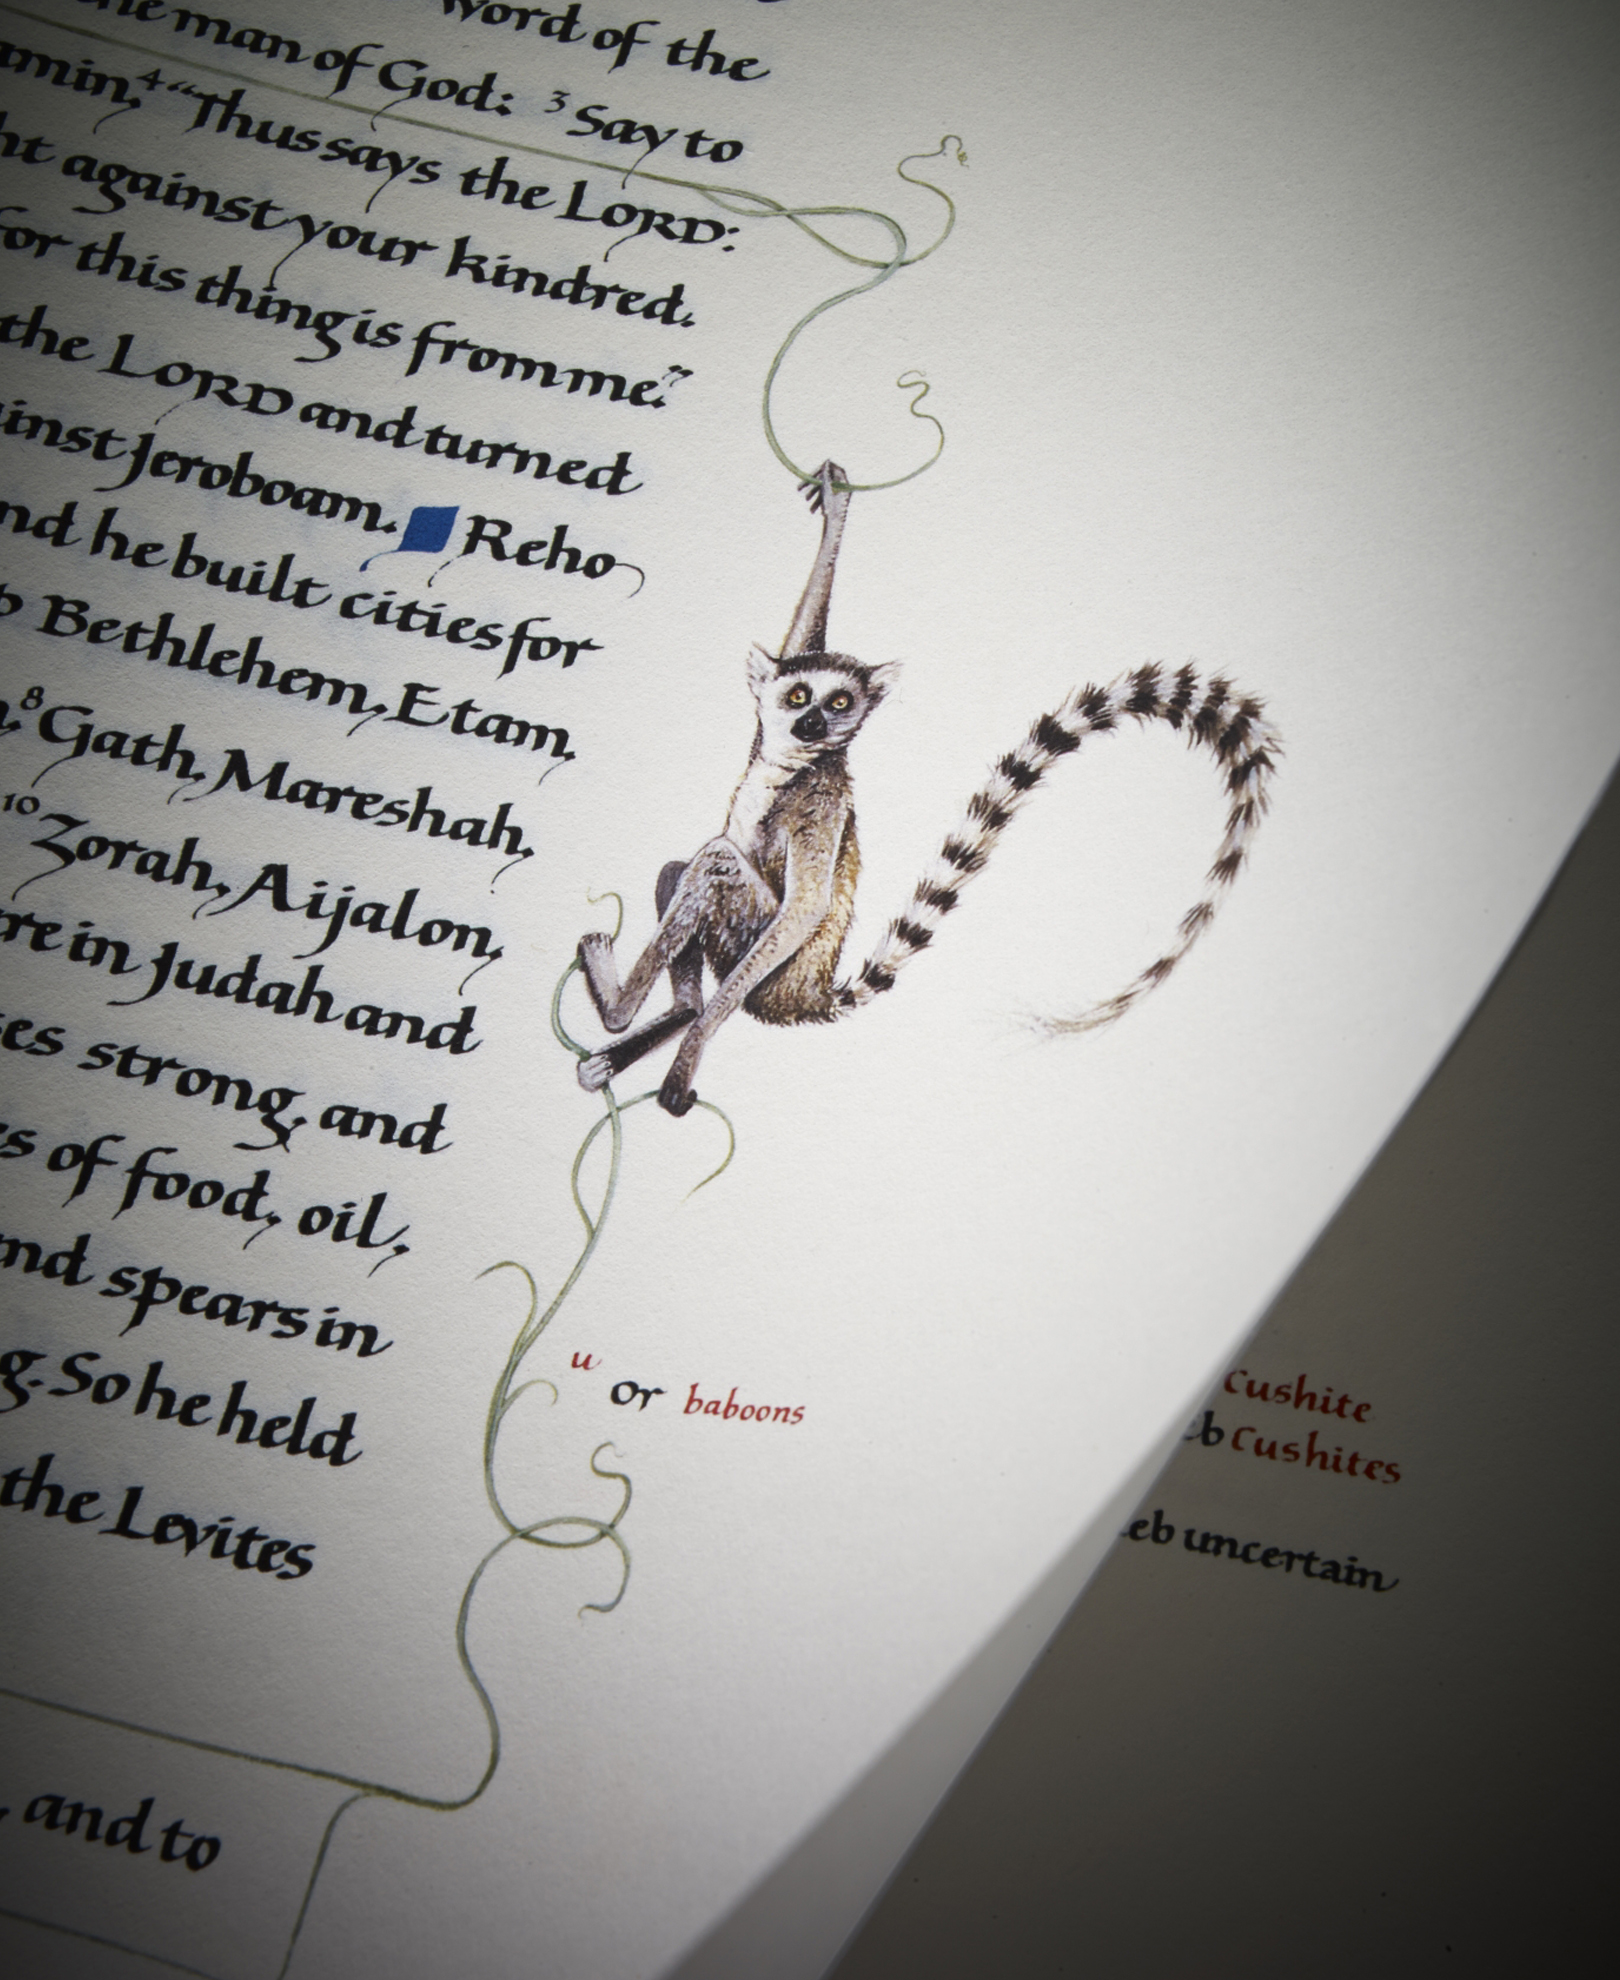 word of the
man of God: 3 Say to
4 "Thus says the LORD:
against your kindred.
for this thing is from me."
the LORD and turned
Jeroboam. Reho
he built cities for
Bethlehem, Etam,
8 Gath, Mareshah,
10 Zorah, Aijalon,
in Judah and
strong, and
of food, oil,
spears in
So he held
the Levites
and to
u or baboons
Cushite
Cushites
uncertain